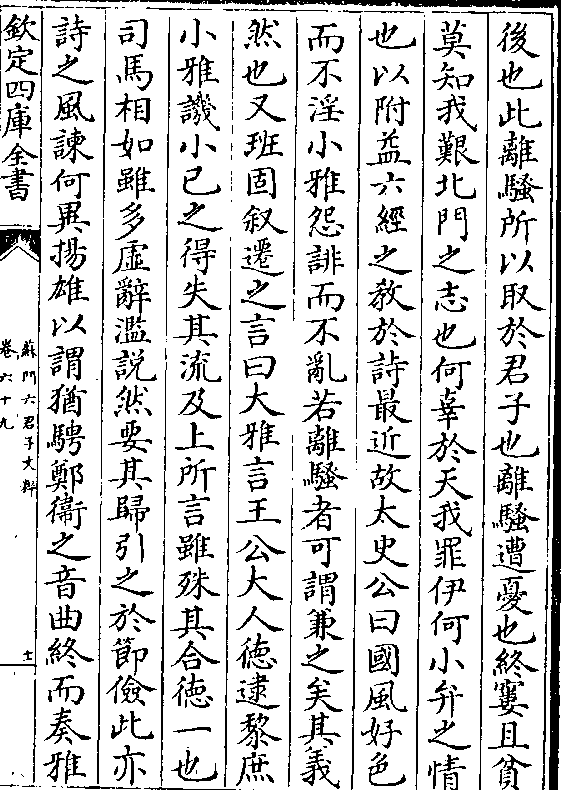 後也此離騷所以取於君子也離騷遭憂也終窶且貧
莫知我艱北門之志也何辜於天我罪伊何小弁之情
也以附益六經之教於詩最近故太史公曰國風好色
而不淫小雅怨誹而不亂若離騷者可謂兼之矣其義
然也又班固叙遷之言曰大雅言王公大人徳逮黎庶
小雅譏小己之得失其流及上所言雖殊其合徳一也
司馬相如雖多虛辭濫説然要其歸引之於節儉此亦
詩之風諫何異揚雄以謂猶騁鄭衞之音曲終而奏雅
欽定四庫全書
蘇門六君子文粹
卷六十九
十一